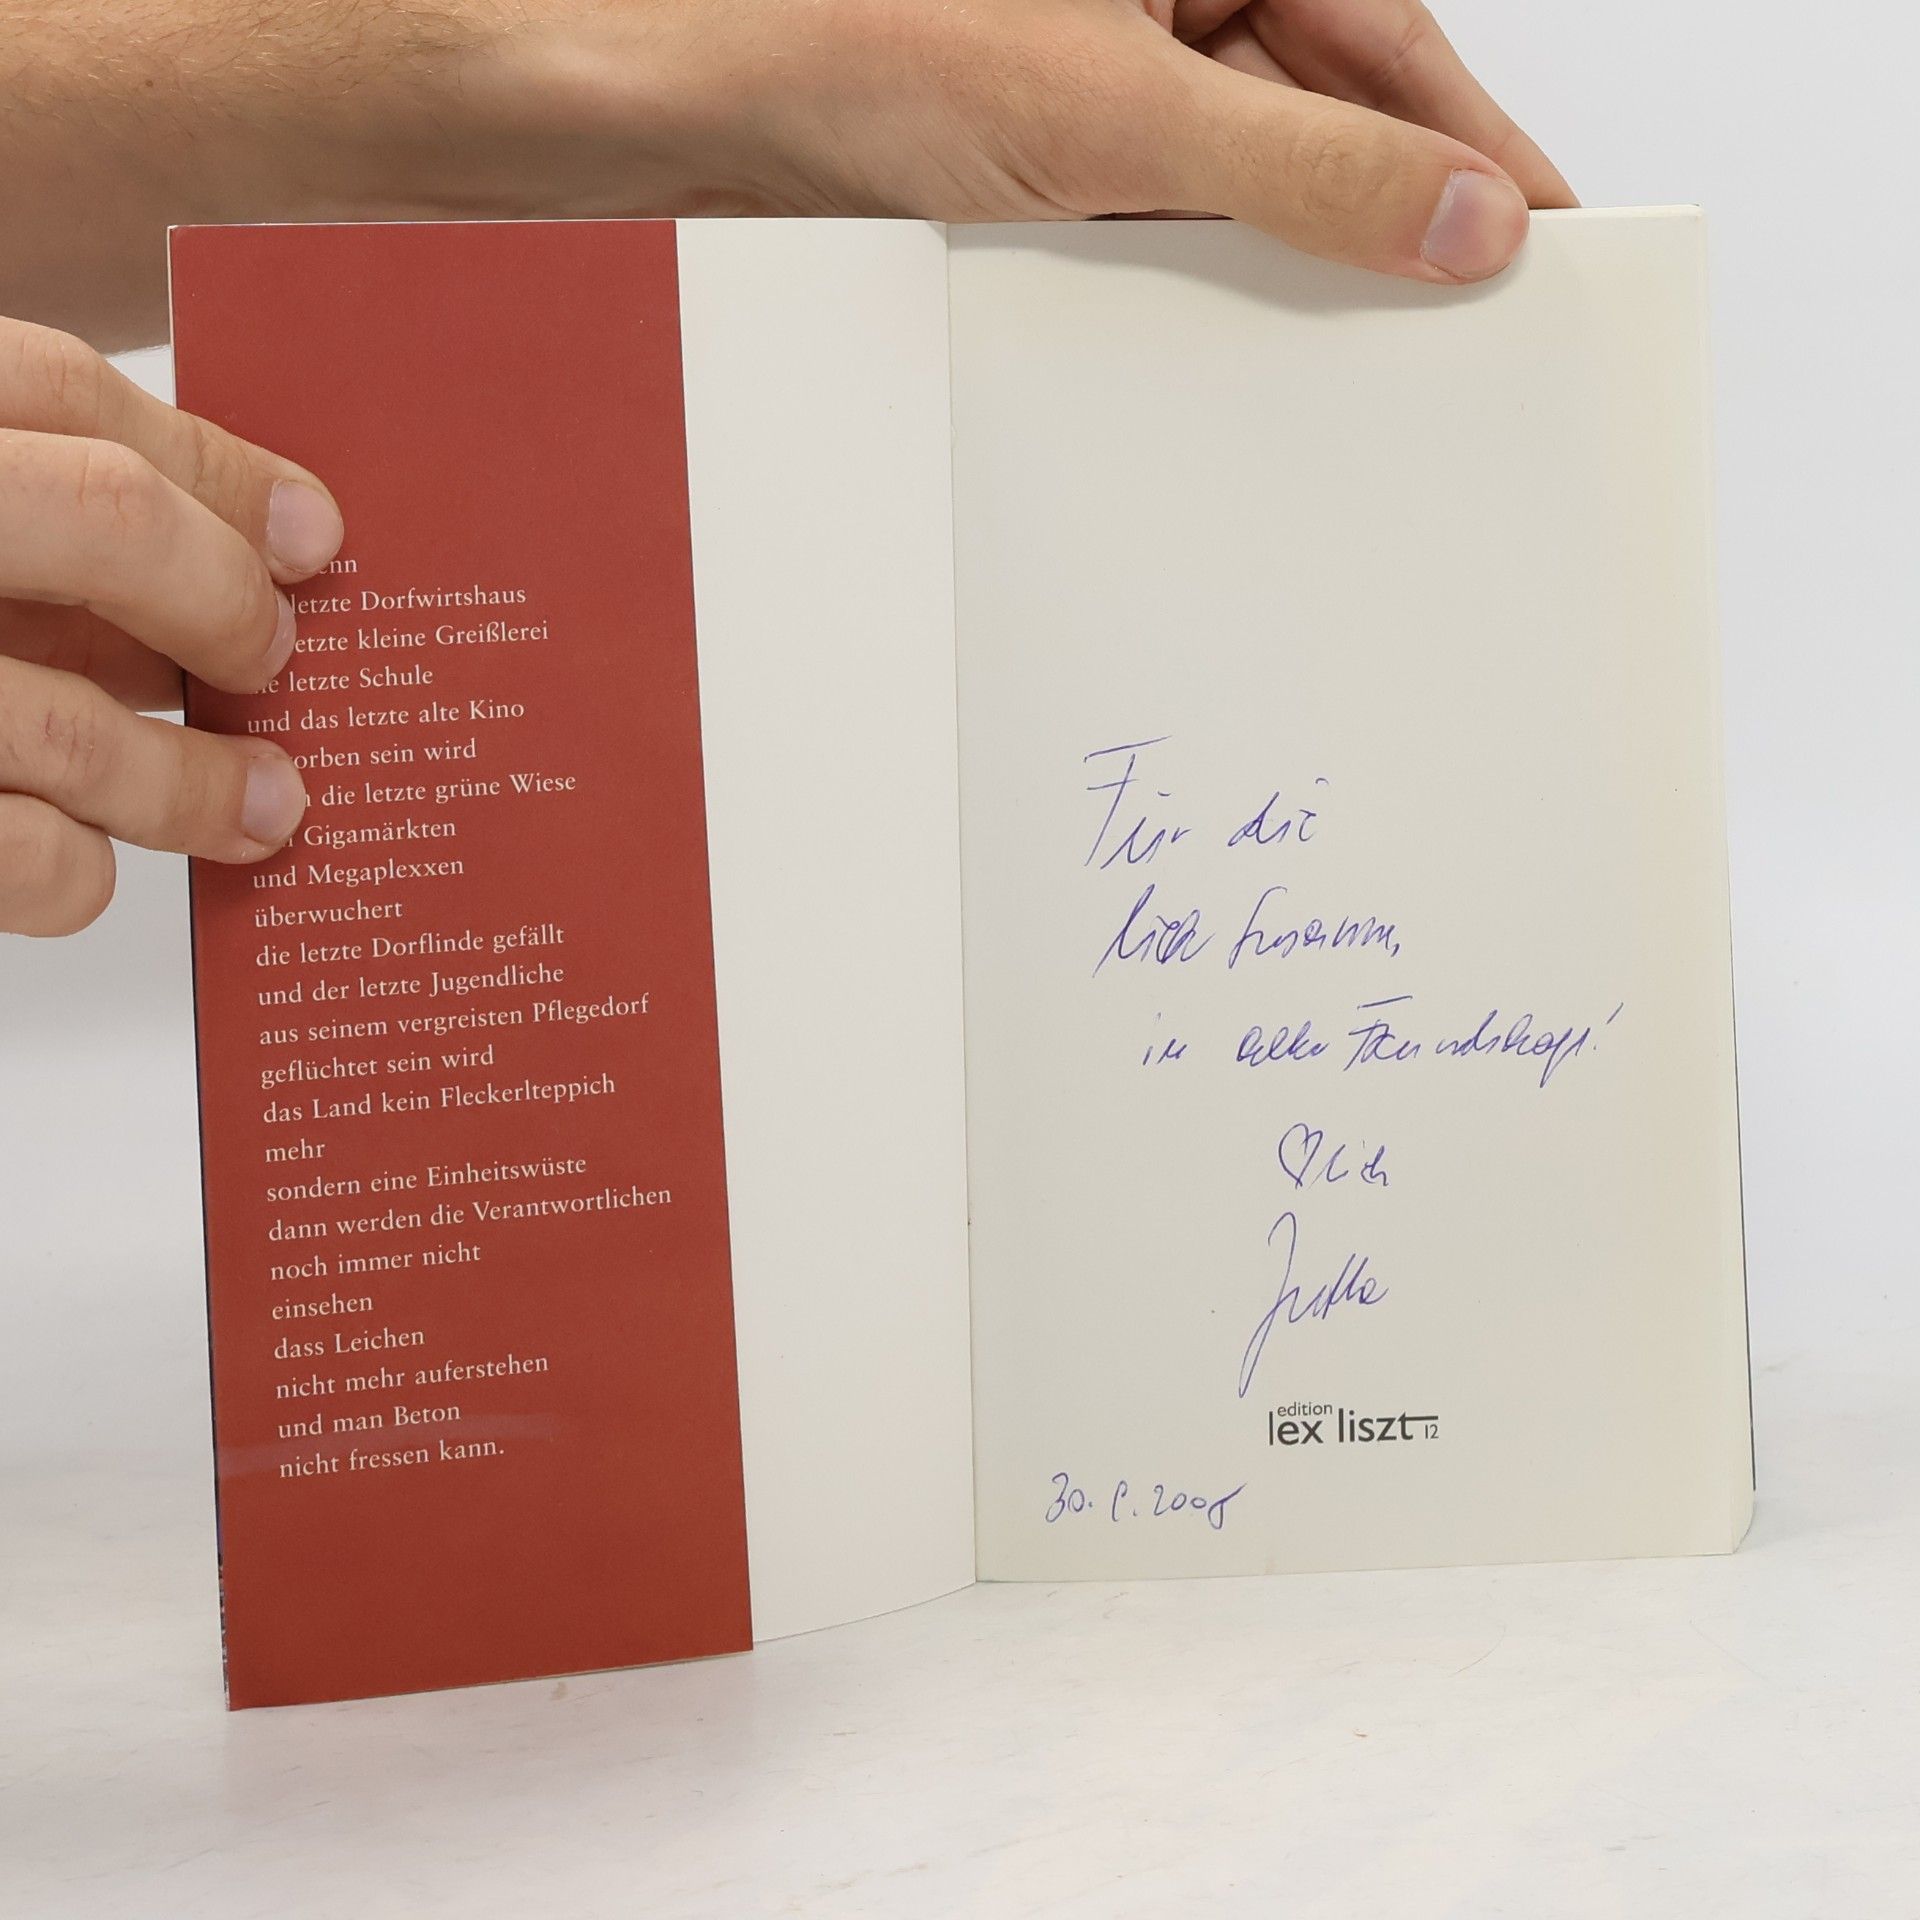 letzte Dorfwirtshaus
letzte kleine Greißlerei
letzte Schule
und das letzte alte Kino
sein wird
die letzte grüne Wiese
Gigamärkten
und Megaplexxen
überwuchert
die letzte Dorflinde gefällt
und der letzte Jugendliche
aus seinem vergreisten Pflegedorf
geflüchtet sein wird
das Land kein Fleckerlteppich
mehr
sondern eine Einheitswüste
dann werden die Verantwortlichen
noch immer nicht
einsehen
dass Leichen
nicht mehr auferstehen
und man Beton
nicht fressen kann.
Für die
liebe Susanne,
in aller Freundschaft!
♡lich
Jutta
edition
lex liszt 12
30.